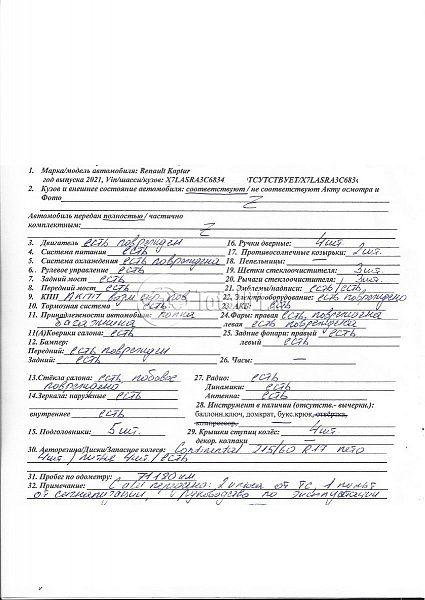 1. Марка/модель автомобиля: Renault Kaptur
год выпуска 2021, Vin/шасси/кузов: X7LASRA3C6834 ТСУТСТВУЕТ/X7LASRA3C683
2. Кузов и внешнее состояние автомобиля: соответствуют / не соответствуют Акту осмотра и
Фото
Автомобиль передан полностью / частично
комплектным:
3. Двигатель есть поврежден
4. Система питания есть
5. Система охлаждения есть повреждена
6. Рулевое управление есть
7. Задний мост есть
8. Передний мост есть
9. КПП АКПП
10. Тормозная система есть
11. Принадлежности автомобиля: полка
багажника
11(А)Коврики салона: есть
12. Бампер:
Передний: есть поврежден
Задний: есть
13.Стёкла салона: есть, лобовое
повреждено
14.Зеркала: наружные есть
внутреннее есть
15. Подголовники: 5 шт.
16. Ручки дверные: 4 шт.
17. Противосолнечные козырьки: 2 шт.
18. Пепельницы: —
19. Щетки стеклоочистителя: 3 шт.
20. Рычаги стеклоочистителя: 3 шт.
21. Эмблемы/надписи: есть / есть
22. Электрооборудование: есть повреждено
23. АКБ: есть
24.Фары: правая есть, повреждена
левая есть повреждена
25. Задние фонари: правый есть
левый есть
26. Часы: —
27. Радио: есть
Динамики: есть
Антенна: есть
28. Инструмент в наличии (отсутств.- вычерки.):
баллонн.ключ, домкрат, букс.крюк,
компрессор.
29. Крышки ступиц колёс: 4 шт
декор. колпаки —
30. Авторезина/Диски/Запасное колесо: Continental 215/60 R17 лето
4 шт / литые 4 шт / есть
31. Пробег по одометру: 71180 км
32. Примечание: С а/м передано: 2 ключа от ТС, 1 пульт
от сигнализации, Руководство по эксплуатации